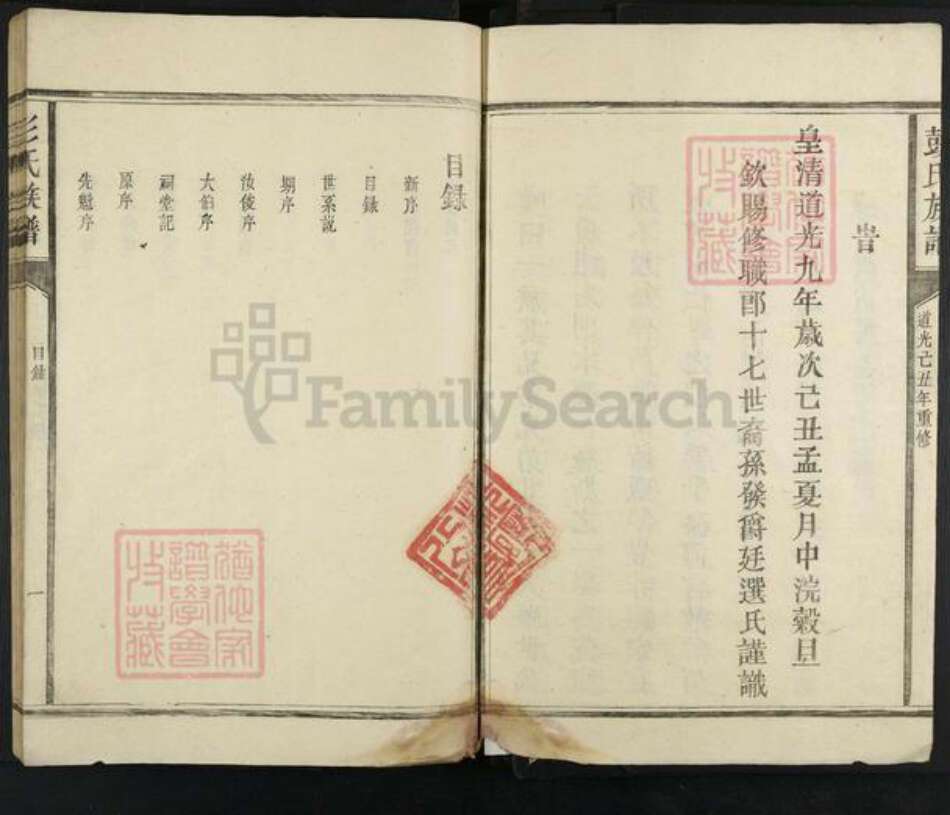 彭氏族譜
道光己丑年重修
旹
皇清道光九年歲次己丑孟夏月中浣穀旦
欽賜修職郎十七世裔孫發爵廷選氏謹識
目錄
新序
目錄
世系說
朝序
汝俊序
大伯序
祠堂記
原序
先魁序
彭氏族譜
目錄
一
FamilySearch
譜學會
收藏
譜學會
收藏